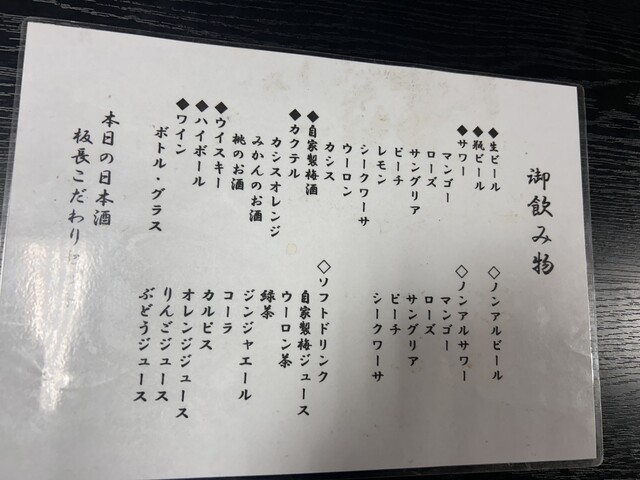 御飲み物
◆生ビール
◆瓶ビール
◆サワー
マンゴー
ローズ
サングリア
ピーチ
レモン
シークワーサ
ウーロン
カシス
◆自家製梅酒
◆カクテル
カシスオレンジ
みかんのお酒
桃のお酒
◆ウイスキー
◆ハイボール
◆ワイン
ボトル・グラス
◇ノンアルビール
◇ノンアルサワー
マンゴー
ローズ
サングリア
ピーチ
シークワーサ
◇ソフトドリンク
自家製梅ジュース
ウーロン茶
緑茶
ジンジャエール
コーラ
カルピス
オレンジジュース
りんごジュース
ぶどうジュース
本日の日本酒
板長こだわり